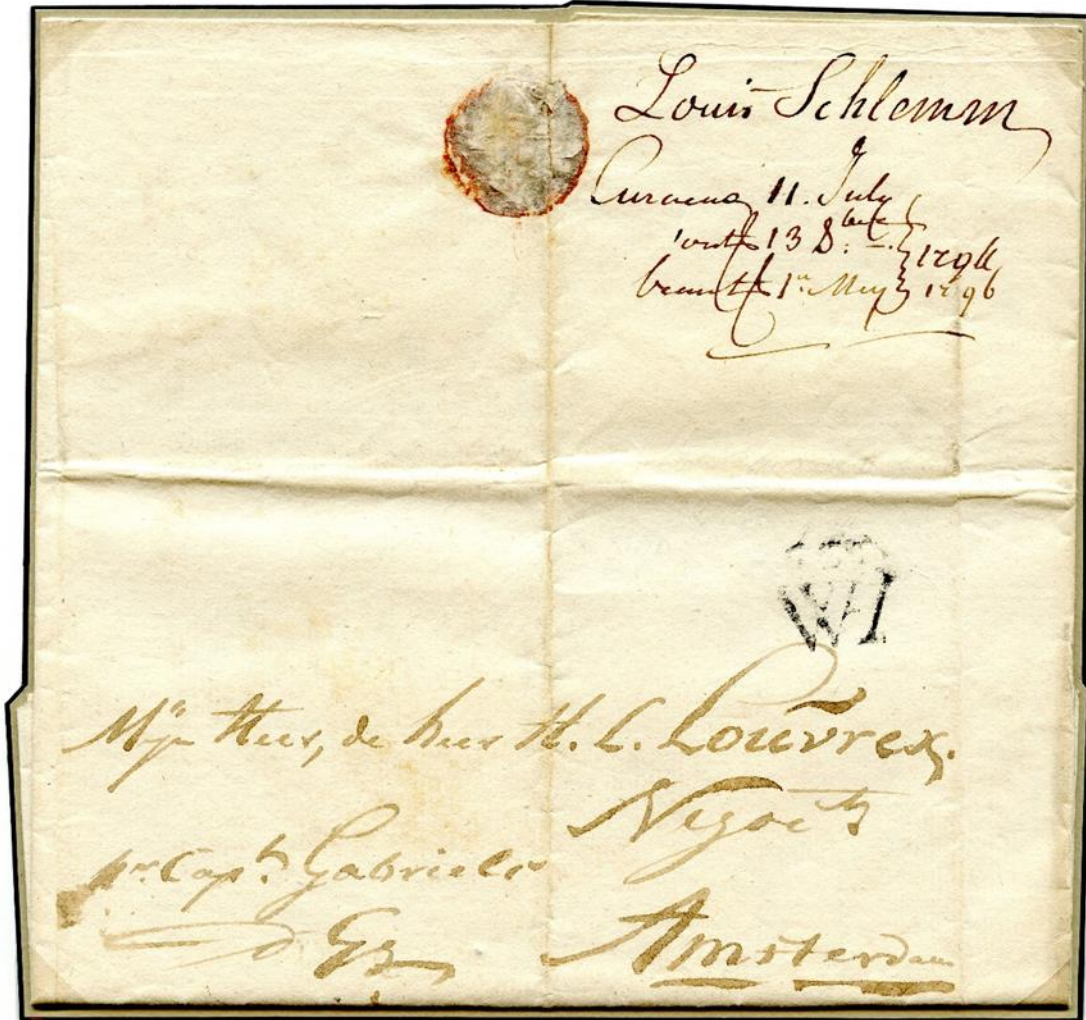 Louis Schlemm
Curacao 11. July
13 8.bre 1794
1.e Mey 1796
WI
Myn Heer, de heer H. C. Louvrex,
Negoct
pr Capt. Gabriels
Amsterdam